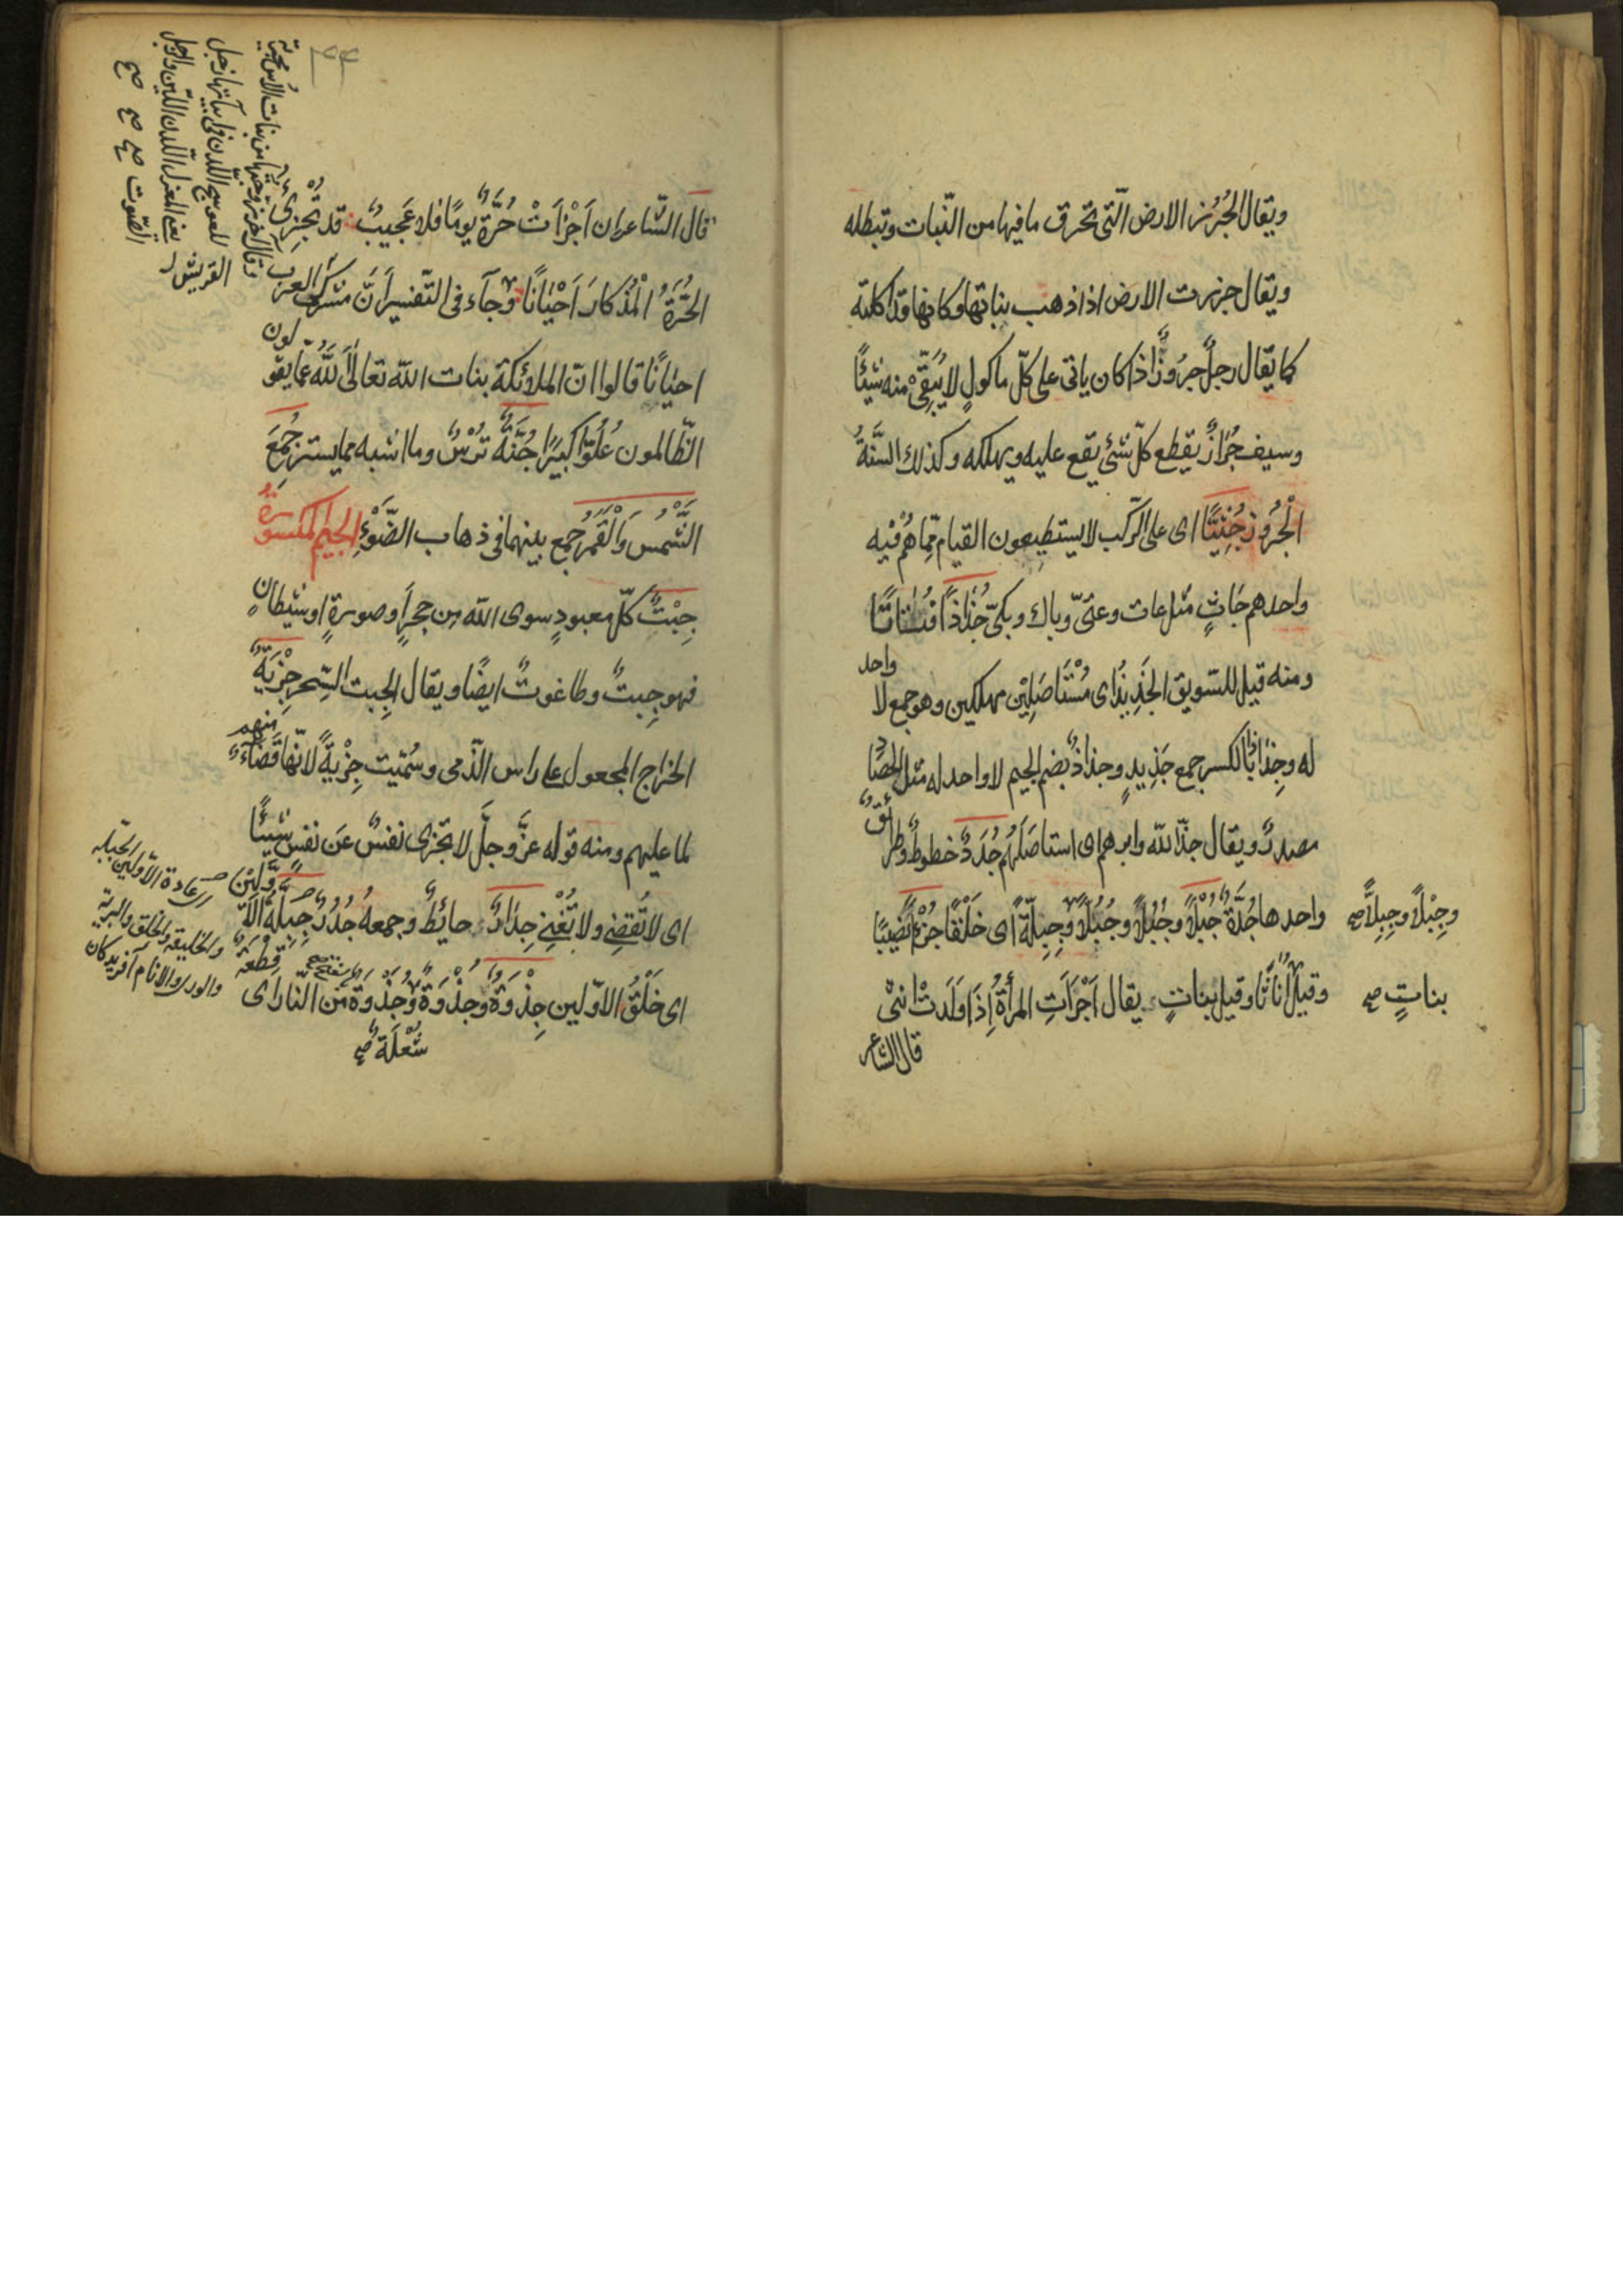 ويقال الجُرُز الارض الّتى تحرق ما فيها من النّبات وتبطله
ويقال جرزت الارض اذا ذهب بنباتها وكانها قد اكلته
كما يقال رجلٌ جرُوزٌ اذا كان ياتى على كلّ ماكولٍ لا يُبقِىْ منه شيئًا
وسيف جُرَازٌ يقطع كلّ شئ يقع عليه ويهلكه وكذلك السَّنَةُ
الْجُرُوز جُثِيًّا اى على الرّكب لا يستطيعون القيام ممّا هُمْ فيه
واحدهم جَاثٍ مثل عات وعتىّ وباك وبكىّ جُذَاذًا فُتَاتًا
ومنه قيل للسّويق الجَذِيذُ اى مُسْتَاصَلِيْن مهلكين وهو جمع لا واحد
له وجِذَاذًا بالكسر جمع جَذِيدٍ وجذاذٌ بضم الجيم لا واحد له مثل الحصاد
مصدرٌ ويقال جذّ الله دابرهم اى استاصَلَهُم جُدَدٌ خطوطٌ وطرائقُ
واحدها جُدَّةٌ جُبْلًا وجُبُلًا وجُبُلًّا وجِبِلَّةً اى خَلْقًا جُزْءً نصيبًا
وجِبْلًا وجِبِلًّا صح
وقيل اُناثًا وقيل بناتٍ يقال اَجْزَاَتِ المرأةُ اِذَا وَلَدَتْ انثىْ
بناتٍ صح
قال الشاعر
قال الشّاعر ان اَجْزَاَتْ حُرَّةٌ يومًا فلا عَجيبٌ قد تُجْزِئُ
الحُرَّةُ الْمُذْكارَ اَحْيَانًا وجآء فى التّفسير اَنَّ مشركى العرب
احيانًا قالوا انّ الملائكة بنات الله تعالٰى اَللّٰهُ عمّا يقولون
الظّالمون عُلُوًّا كبيرًا جُنَّةٌ تُرْسٌ وما اشبه مما يستر جُمِعَ
الشَّمْسُ وَالْقَمَرُ جمع بينهما فى ذهاب الضَّوْءِ الجيم المكسورةُ
جِبْتٌ كلّ معبودٍ سوى الله من حجرٍ اوصورةٍ اوشيطانٍ
فهو جِبتٌ وطاغوتٌ ايضًا ويقال الجِبت السِّحر جِزْيَةٌ
الخراج المجعول على راس الذّمى وسُمّيت جِزْيةً لانّها قَضَآءٌ منهم
لما عليهم ومنه قوله عزَّ وجلَّ لا تجزى نفسٌ عَن نفسٍ شيئًا
اى لا تُقضِىْ ولا تُغْنِىْ جِدَارٌ حائطٌ وجمعهُ جُدُرٌ جِبِلَّةُ الاَوَّلِيْنَ
اى خَلْقُ الاوّلين جِذْوَةٌ وجُذْوَةٌ وجَذْوةٌ من النّار اى قِطْعَةٌ
شُعْلَةٌ صح